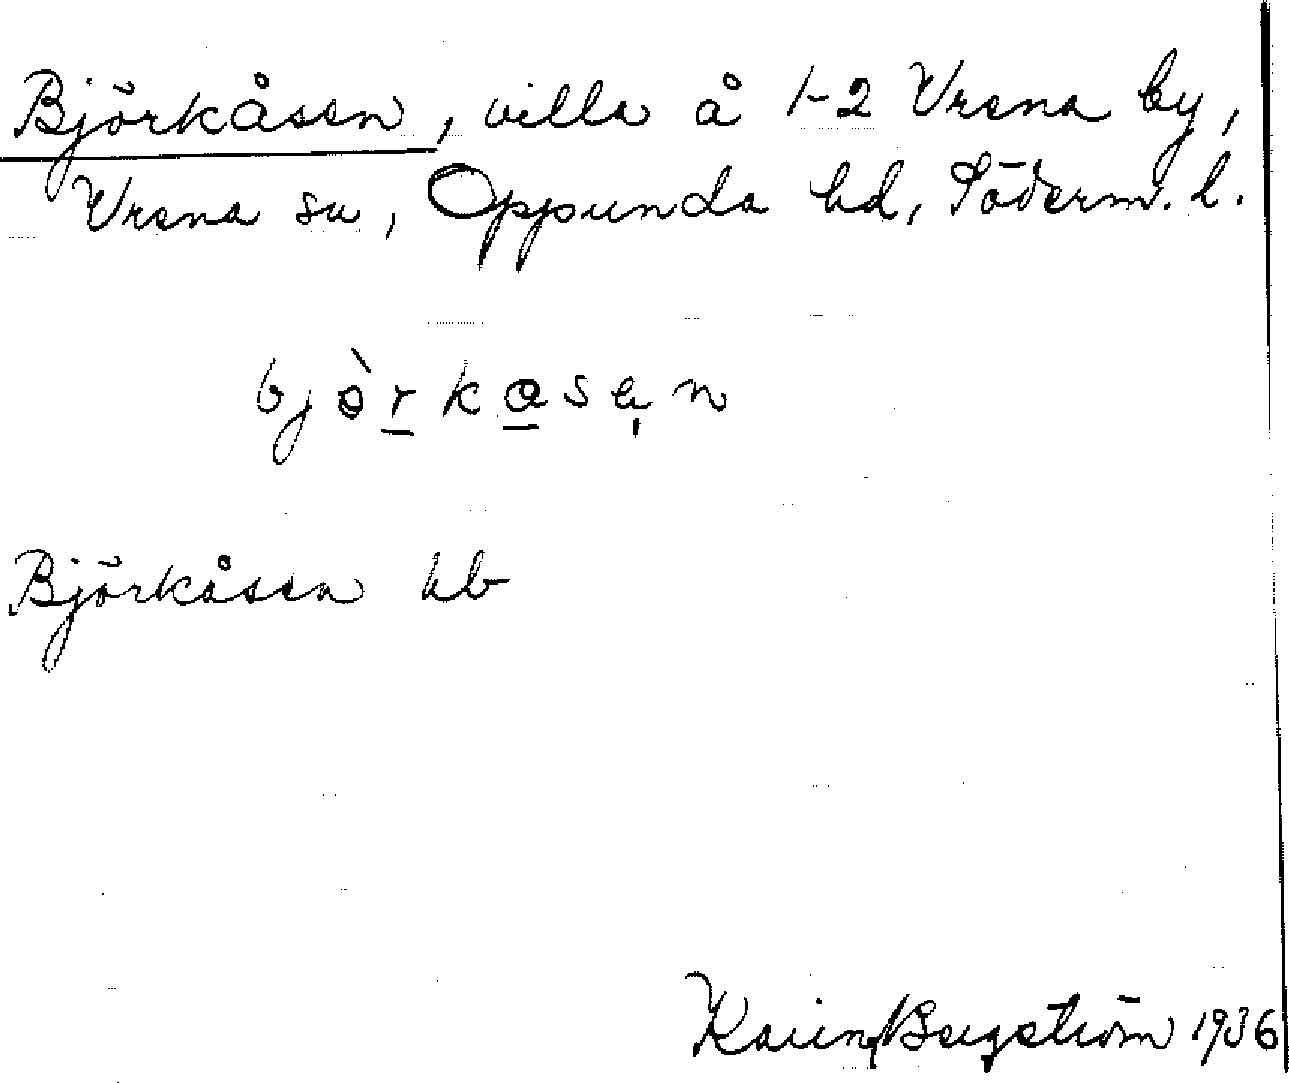 Björkåsen, villa å 1-2 Vrena by,
Vrena sn, Oppunda hd, Söderm. l.
bjò̱rkasen
Björkåsen hb
Karin Bergström 1936